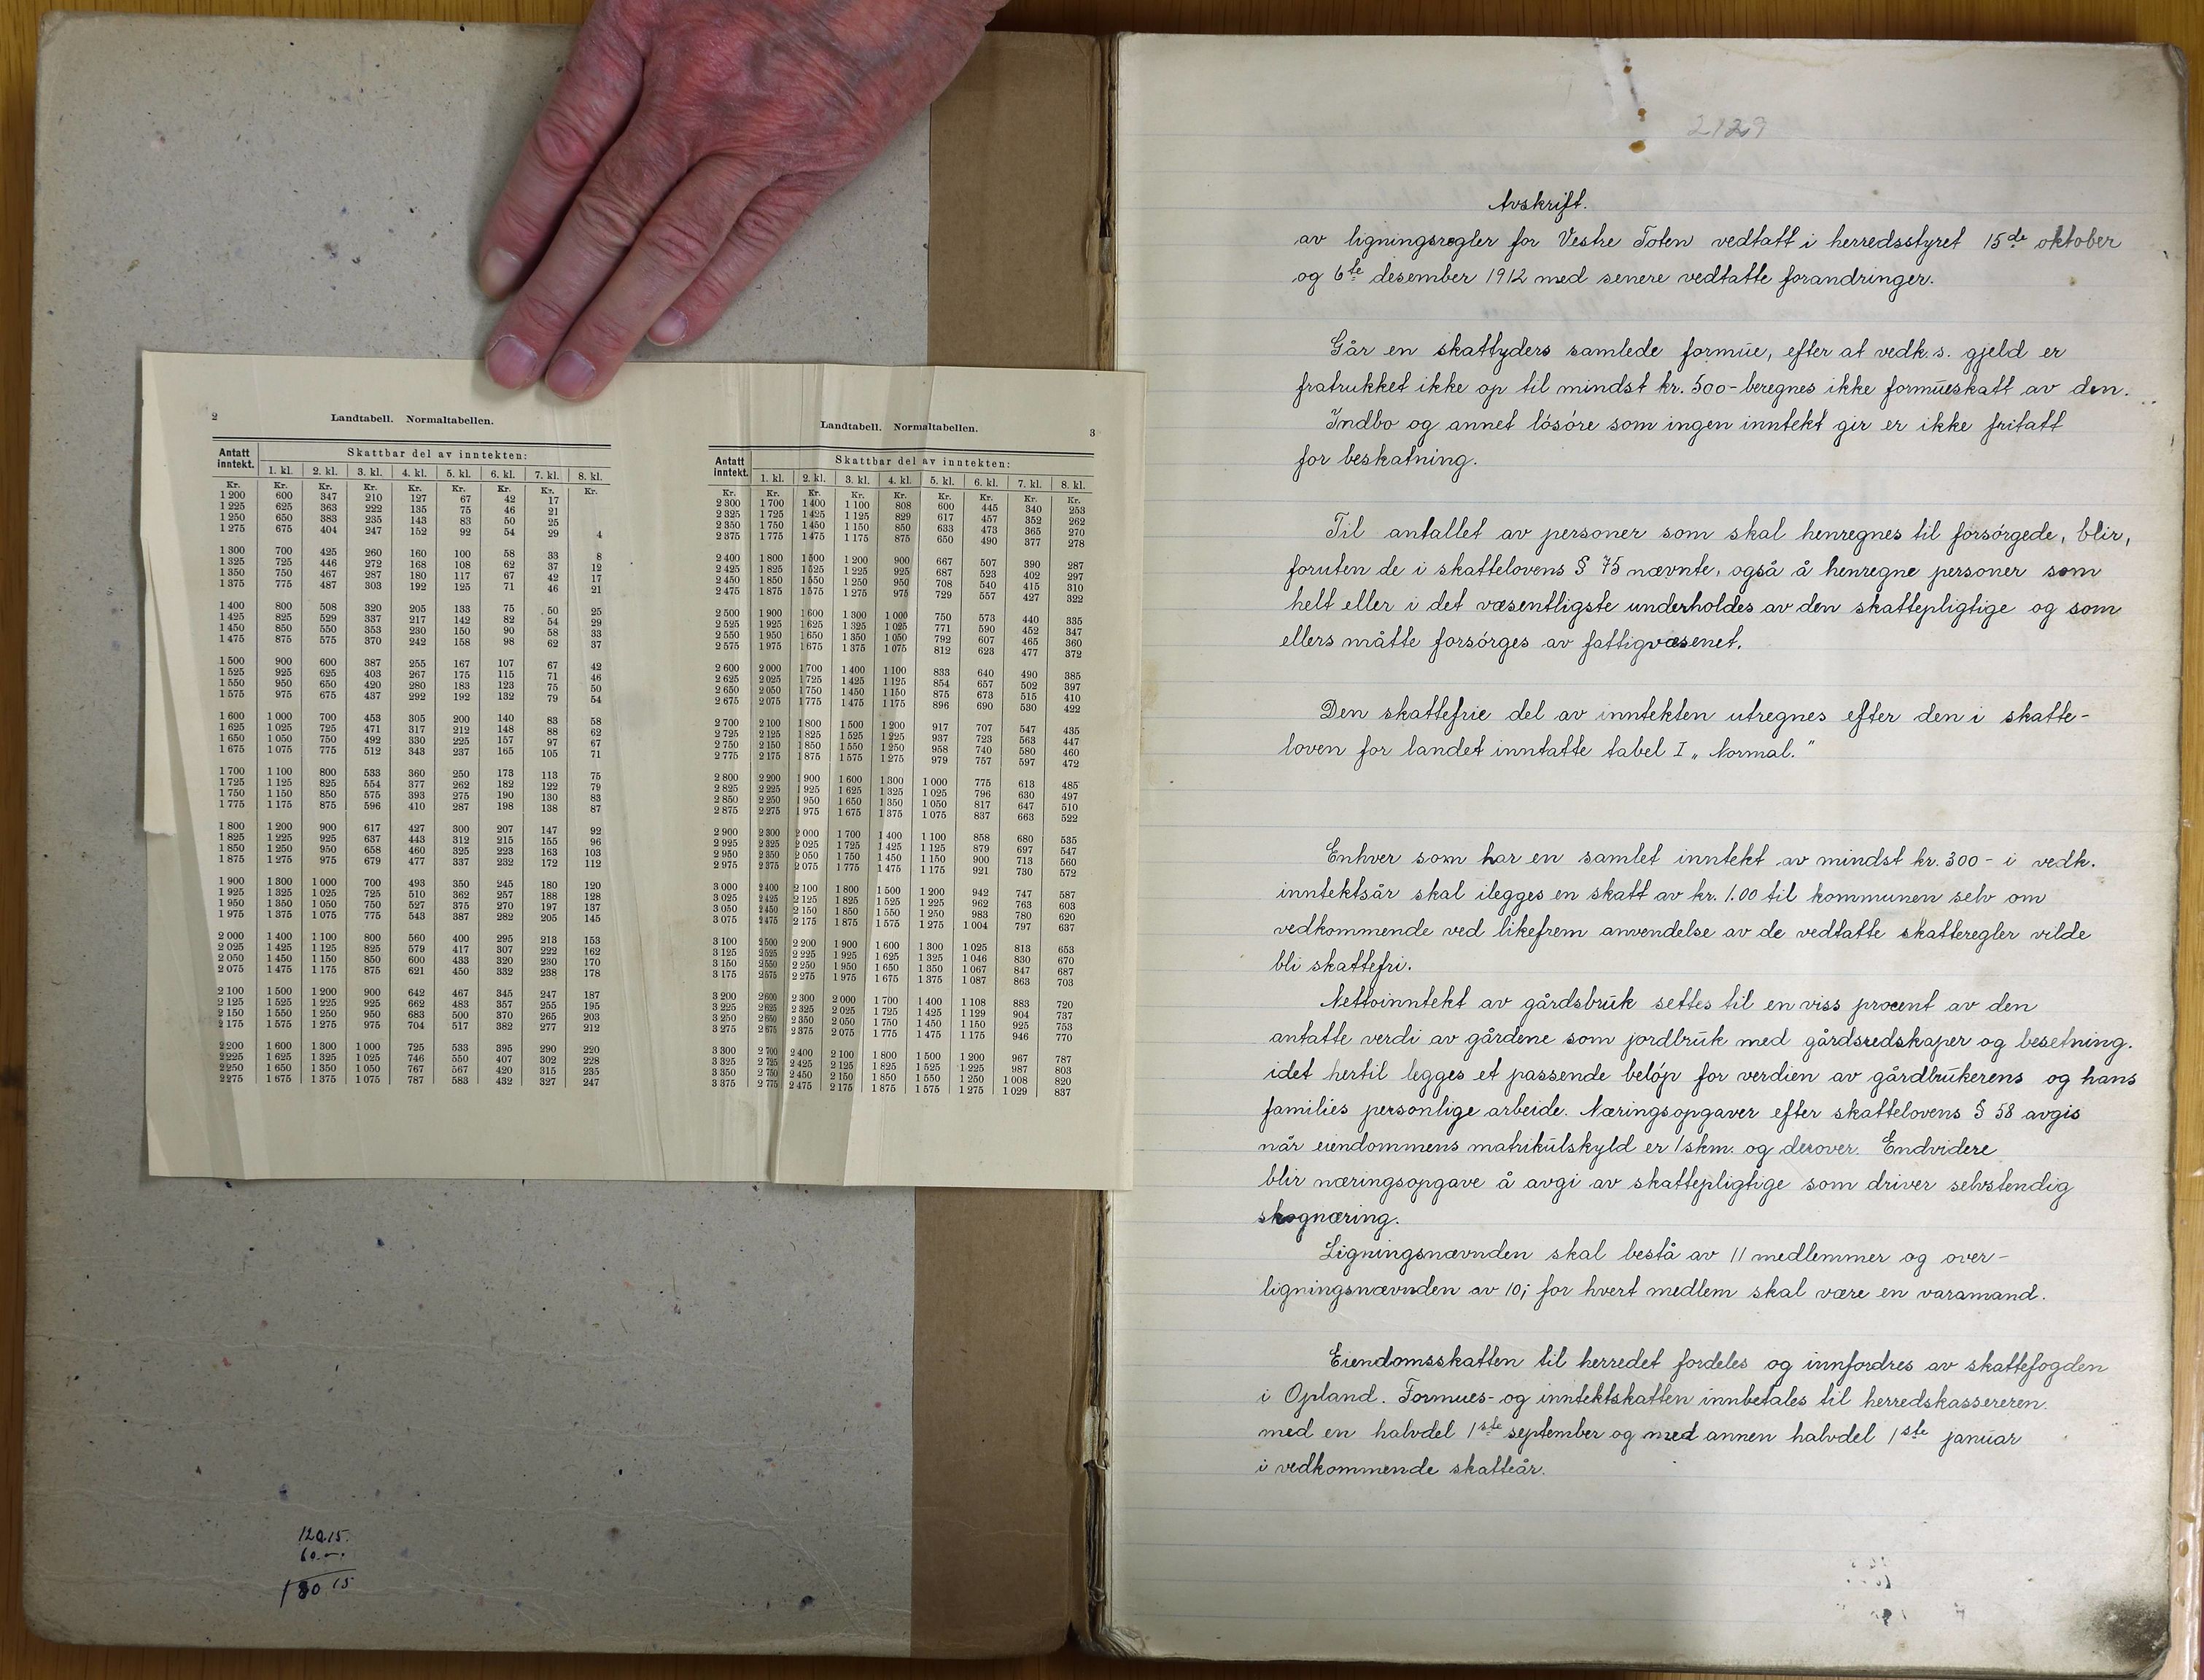 2
Landtabell. Normaltabellen.
Antatt inntekt. Skattbar del av inntekten:
1. kl. 2. kl. 3. kl. 4. kl. 5. kl. 6. kl. 7. kl. 8. kl.
Kr. Kr. Kr. Kr. Kr. Kr. Kr. Kr. Kr.
1 200 600 347 210 127 67 42 17
1 225 625 363 222 135 75 46 21
1 250 650 383 235 143 83 50 25
1 275 675 404 247 152 92 54 29 4
1 300 700 425 260 160 100 58 33 8
1 325 725 446 272 168 108 62 37 12
1 350 750 467 287 180 117 67 42 17
1 375 775 487 303 192 125 71 46 21
1 400 800 508 320 205 133 75 50 25
1 425 825 529 337 217 142 82 54 29
1 450 850 550 353 230 150 90 58 33
1 475 875 575 370 242 158 98 62 37
1 500 900 600 387 255 167 107 67 42
1 525 925 625 403 267 175 115 71 46
1 550 950 650 420 280 183 123 75 50
1 575 975 675 437 292 192 132 79 54
1 600 1 000 700 453 305 200 140 83 58
1 625 1 025 725 471 317 212 148 88 62
1 650 1 050 750 492 330 225 157 97 67
1 675 1 075 775 512 343 237 165 105 71
1 700 1 100 800 533 360 250 173 113 75
1 725 1 125 825 554 377 262 182 122 79
1 750 1 150 850 575 393 275 190 130 83
1 775 1 175 875 596 410 287 198 138 87
1 800 1 200 900 617 427 300 207 147 92
1 825 1 225 925 637 443 312 215 155 96
1 850 1 250 950 658 460 325 223 163 103
1 875 1 275 975 679 477 337 232 172 112
1 900 1 300 1 000 700 493 350 245 180 120
1 925 1 325 1 025 725 510 362 257 188 128
1 950 1 350 1 050 750 527 375 270 197 137
1 975 1 375 1 075 775 543 387 282 205 145
2 000 1 400 1 100 800 560 400 295 213 153
2 025 1 425 1 125 825 579 417 307 222 162
2 050 1 450 1 150 850 600 433 320 230 170
2 075 1 475 1 175 875 621 450 332 238 178
2 100 1 500 1 200 900 642 467 345 247 187
2 125 1 525 1 225 925 662 483 357 255 195
2 150 1 550 1 250 950 683 500 370 265 203
2 175 1 575 1 275 975 704 517 382 277 212
2 200 1 600 1 300 1 000 725 533 395 290 220
2 225 1 625 1 325 1 025 746 550 407 302 228
2 250 1 650 1 350 1 050 767 567 420 315 235
2 275 1 675 1 375 1 075 787 583 432 327 247
Landtabell. Normaltabellen.
3
Antatt inntekt. Skattbar del av inntekten:
1. kl. 2. kl. 3. kl. 4. kl. 5. kl. 6. kl. 7. kl. 8. kl.
Kr. Kr. Kr. Kr. Kr. Kr. Kr. Kr. Kr.
2 300 1 700 1 400 1 100 808 600 445 340 253
2 325 1 725 1 425 1 125 829 617 457 352 262
2 350 1 750 1 450 1 150 850 633 473 365 270
2 375 1 775 1 475 1 175 875 650 490 377 278
2 400 1 800 1 500 1 200 900 667 507 390 287
2 425 1 825 1 525 1 225 925 687 523 402 297
2 450 1 850 1 550 1 250 950 708 540 415 310
2 475 1 875 1 575 1 275 975 729 557 427 322
2 500 1 900 1 600 1 300 1 000 750 573 440 335
2 525 1 925 1 625 1 325 1 025 771 590 452 347
2 550 1 950 1 650 1 350 1 050 792 607 465 360
2 575 1 975 1 675 1 375 1 075 812 623 477 372
2 600 2 000 1 700 1 400 1 100 833 640 490 385
2 625 2 025 1 725 1 425 1 125 854 657 502 397
2 650 2 050 1 750 1 450 1 150 875 673 515 410
2 675 2 075 1 775 1 475 1 175 896 690 530 422
2 700 2 100 1 800 1 500 1 200 917 707 547 435
2 725 2 125 1 825 1 525 1 225 937 723 563 447
2 750 2 150 1 850 1 550 1 250 958 740 580 460
2 775 2 175 1 875 1 575 1 275 979 757 597 472
2 800 2 200 1 900 1 600 1 300 1 000 775 613 485
2 825 2 225 1 925 1 625 1 325 1 025 796 630 497
2 850 2 250 1 950 1 650 1 350 1 050 817 647 510
2 875 2 275 1 975 1 675 1 375 1 075 837 663 522
2 900 2 300 2 000 1 700 1 400 1 100 858 680 535
2 925 2 325 2 025 1 725 1 425 1 125 879 697 547
2 950 2 350 2 050 1 750 1 450 1 150 900 713 560
2 975 2 375 2 075 1 775 1 475 1 175 921 730 572
3 000 2 400 2 100 1 800 1 500 1 200 942 747 587
3 025 2 425 2 125 1 825 1 525 1 225 962 763 603
3 050 2 450 2 150 1 850 1 550 1 250 983 780 620
3 075 2 475 2 175 1 875 1 575 1 275 1 004 797 637
3 100 2 500 2 200 1 900 1 600 1 300 1 025 813 653
3 125 2 525 2 225 1 925 1 625 1 325 1 046 830 670
3 150 2 550 2 250 1 950 1 650 1 350 1 067 847 687
3 175 2 575 2 275 1 975 1 675 1 375 1 087 863 703
3 200 2 600 2 300 2 000 1 700 1 400 1 108 883 720
3 225 2 625 2 325 2 025 1 725 1 425 1 129 904 737
3 250 2 650 2 350 2 050 1 750 1 450 1 150 925 753
3 275 2 675 2 375 2 075 1 775 1 475 1 175 946 770
3 300 2 700 2 400 2 100 1 800 1 500 1 200 967 787
3 325 2 725 2 425 2 125 1 825 1 525 1 225 987 803
3 350 2 750 2 450 2 150 1 850 1 550 1 250 1 008 820
3 375 2 775 2 475 2 175 1 875 1 575 1 275 1 029 837
120.15.
60.-.
180 15
2129
Avskrift.
av ligningsregler for Vestre Toten vedtatt i herredsstyret 15de oktober
og 6te desember 1912 med senere vedtatte forandringer.
Går en skattyders samlede formue, efter at vedk.s. gjeld er
fratrukket ikke op til mindst kr. 500- beregnes ikke formueskatt av den.
Indbo og annet lösöre som ingen inntekt gir er ikke fritatt
for beskatning.
Til antallet av personer som skal henregnes til forsörgede, blir,
foruten de i skattelovens § 75 nævnte, også å henregne personer som
helt eller i det væsentligste underholdes av den skattepligtige og som
ellers måtte forsörges av fattigvæsenet.
Den skattefrie del av inntekten utregnes efter den i skatte-
loven for landet inntatte tabel I „Normal."
Enhver som har en samlet inntekt av mindst kr. 300- i vedk.
inntektsår skal ilegges en skatt av kr. 1.00 til kommunen selv om
vedkommende ved likefrem anvendelse av de vedtatte skatteregler vilde
bli skattefri.
Nettoinntekt av gårdsbruk settes til en viss procent av den
antatte verdi av gårdene som jordbruk med gårdsredskaper og besetning.
idet hertil legges et passende belöp for verdien av gårdbrukerens og hans
families personlige arbeide. Næringsopgaver efter skattelovens § 58 avgis
når eiendommens matrikulskyld er 1 skm. og derover. Endvidere
blir næringsopgave å avgi av skattepligtige som driver selvstendig
skognæring.
Ligningsnævnden skal bestå av 11 medlemmer og over-
ligningsnævnden av 10; for hvert medlem skal være en varamand.
Eiendomsskatten til herredet fordeles og innfordres av skattefogden
i Opland. Formues- og inntektskatten innbetales til herredskassereren.
med en halvdel 1ste september og med annen halvdel 1ste januar
i vedkommende skatteår.